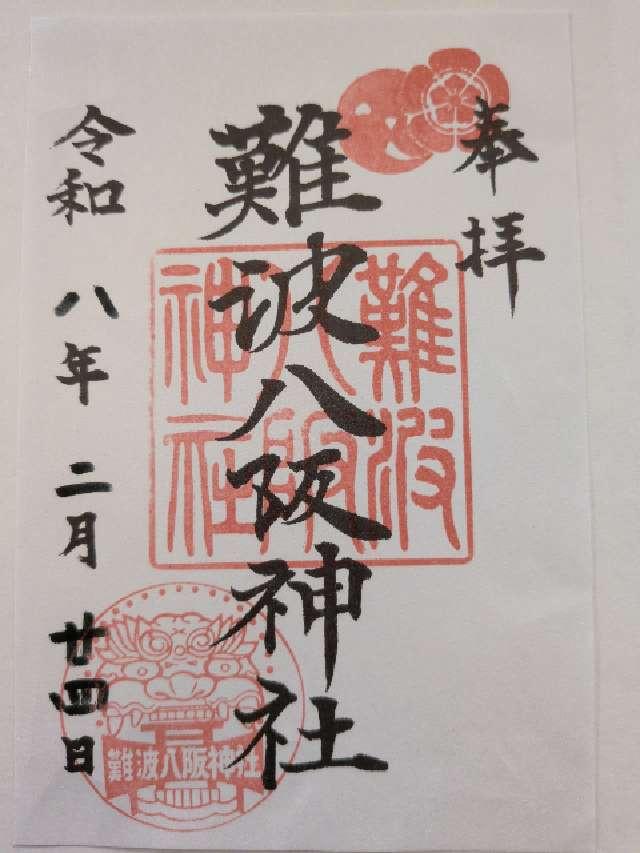 奉拝
難波八阪神社
令和八年二月廿四日
難波
八阪
神社
難波八阪神社